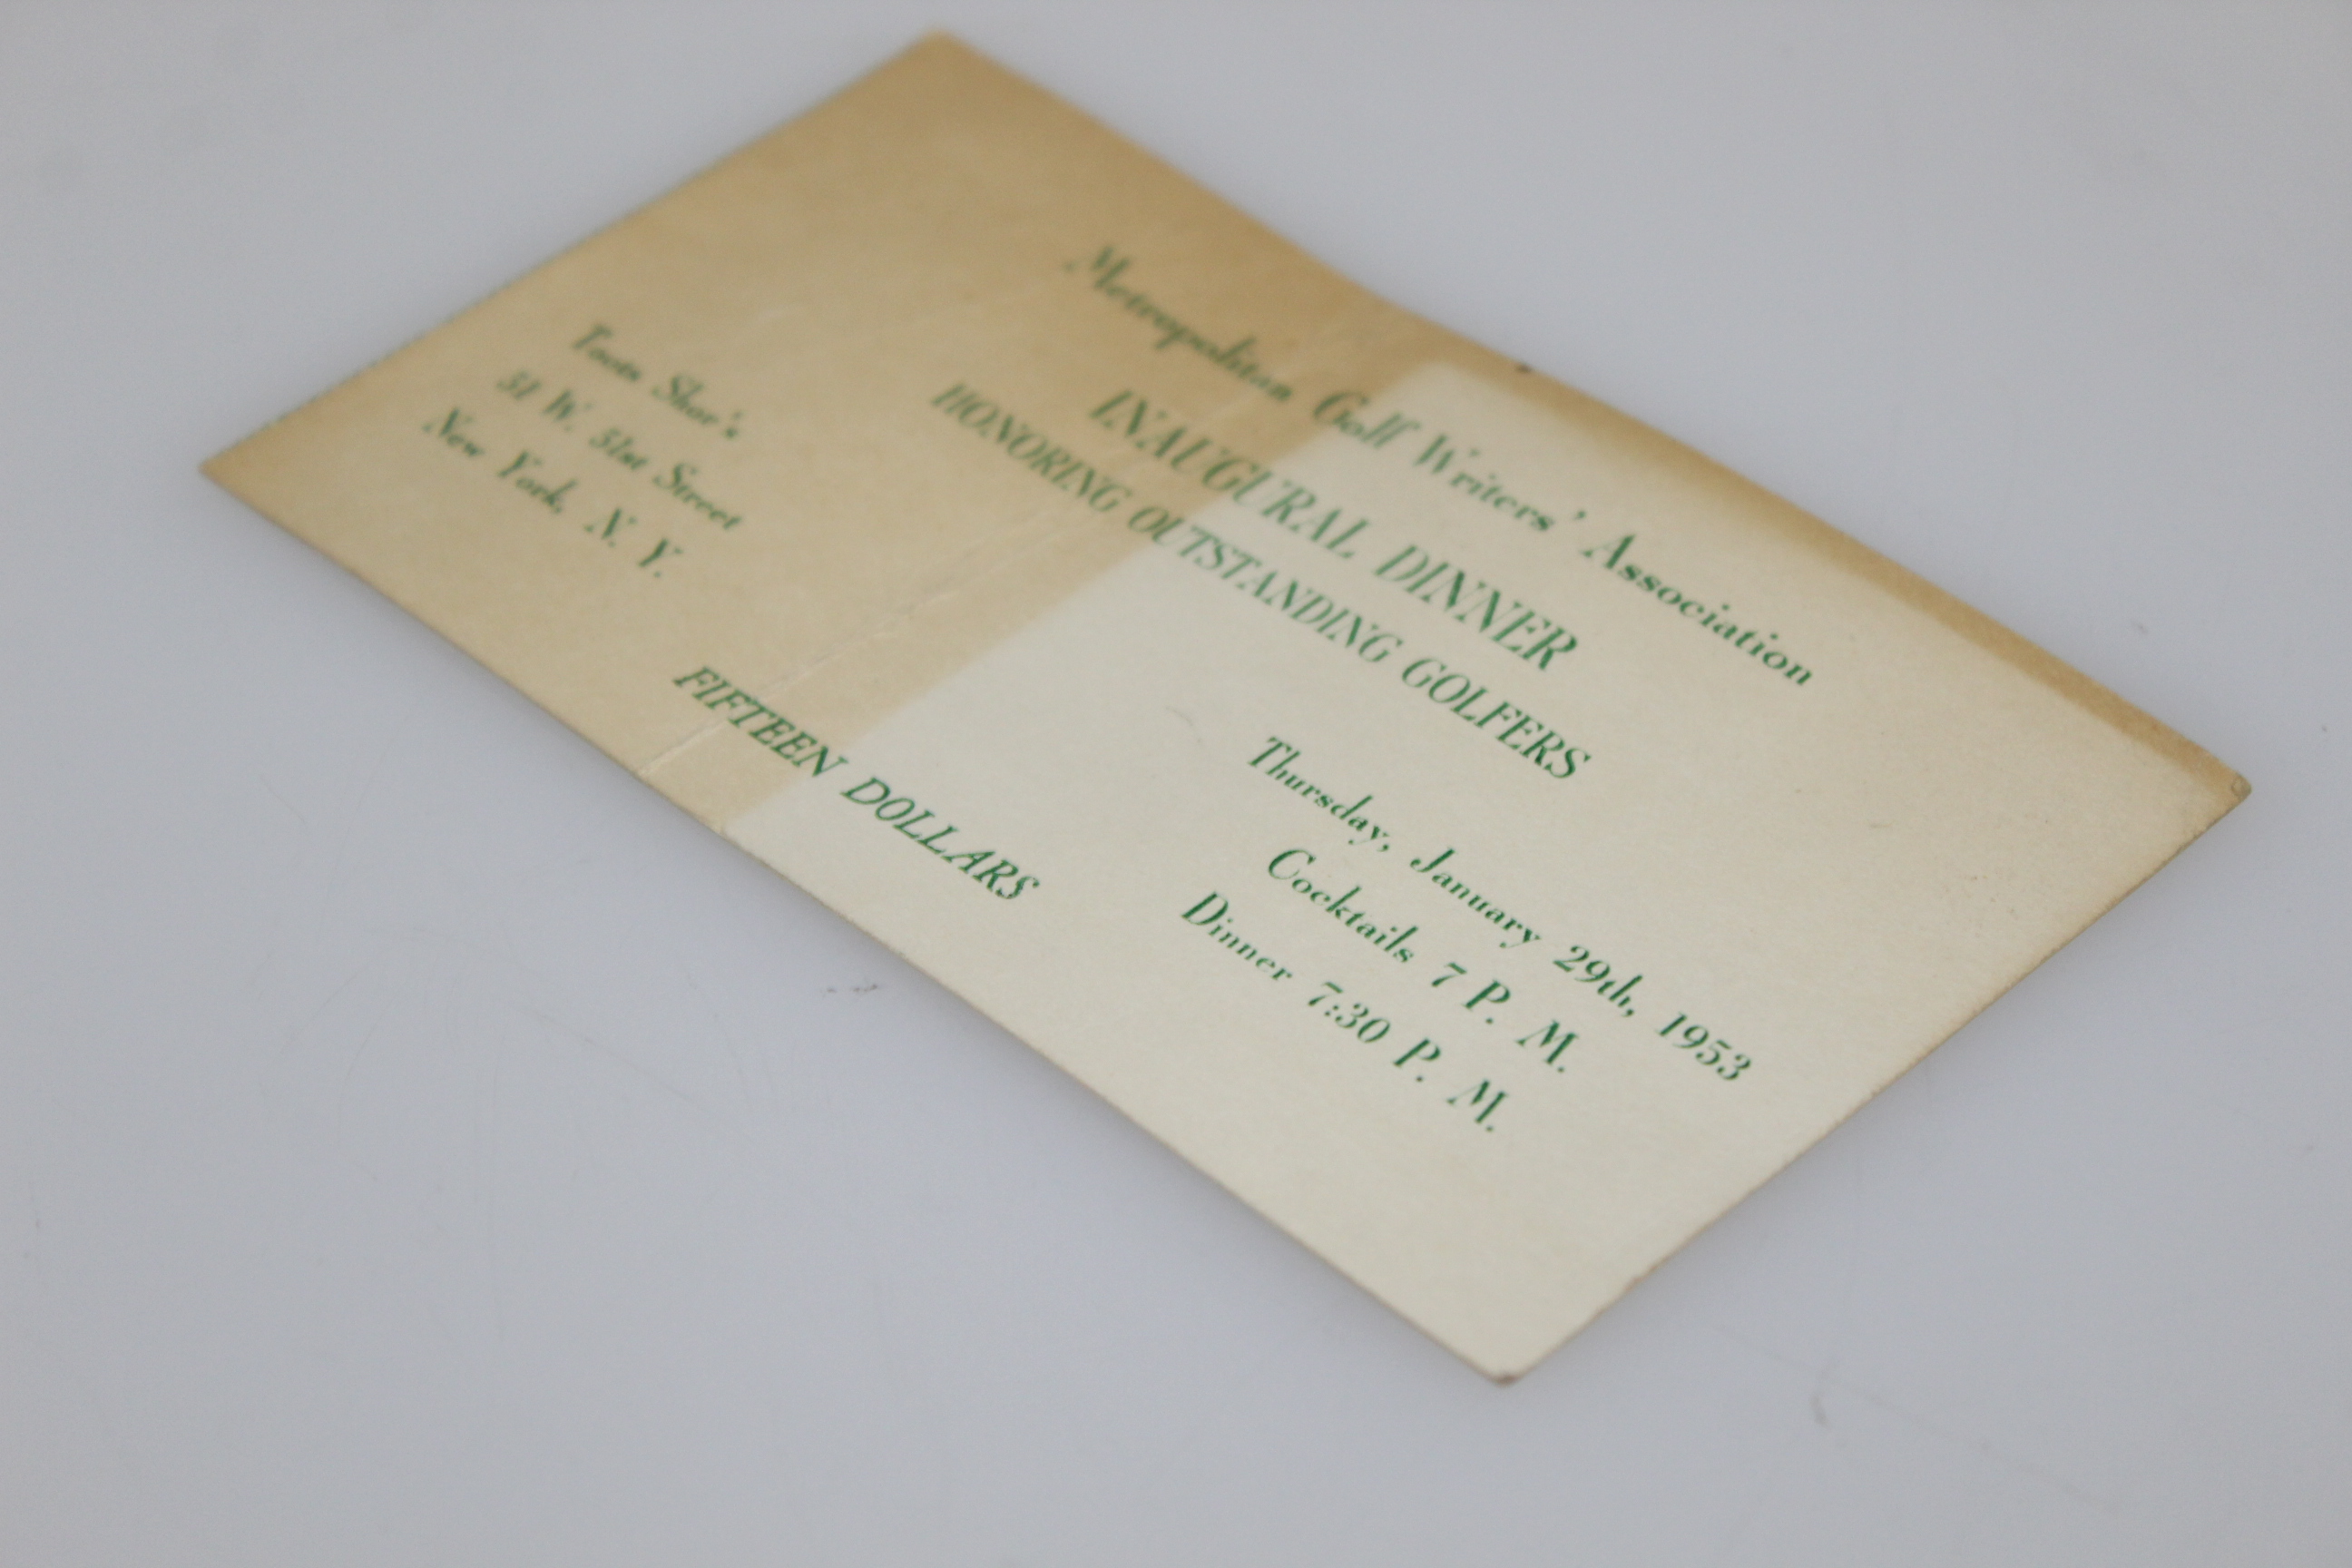 Metropolitan Golf Writers' Association
INAUGURAL DINNER
HONORING OUTSTANDING GOLFERS
Toots Shor's
51 W. 51st Street
New York, N. Y.
Thursday, January 29th, 1953
Cocktails 7 P. M.
Dinner 7:30 P. M.
FIFTEEN DOLLARS